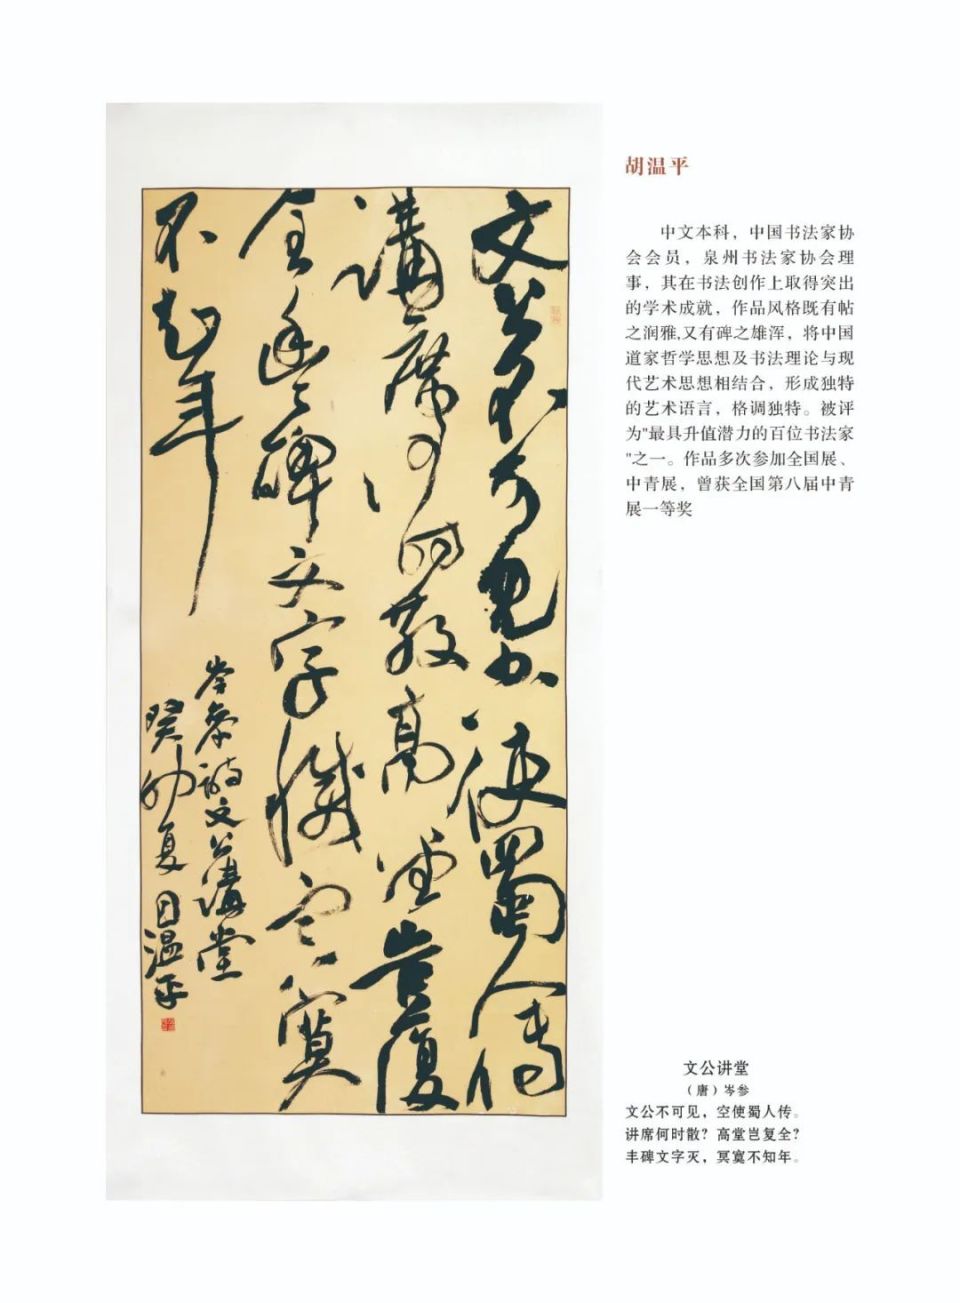 文公不可見空使蜀人傳
講席何時散高堂豈復
全豐碑文字滅冥寞
不知年
岑參詩文公講堂
癸卯夏日温平
胡温平
中文本科，中国书法家协
会会员，泉州书法家协会理
事，其在书法创作上取得突出
的学术成就，作品风格既有帖
之润雅,又有碑之雄浑，将中国
道家哲学思想及书法理论与现
代艺术思想相结合，形成独特
的艺术语言，格调独特。被评
为"最具升值潜力的百位书法家
"之一。作品多次参加全国展、
中青展，曾获全国第八届中青
展一等奖
文公讲堂
（唐）岑参
文公不可见，空使蜀人传。
讲席何时散？高堂岂复全？
丰碑文字灭，冥寞不知年。